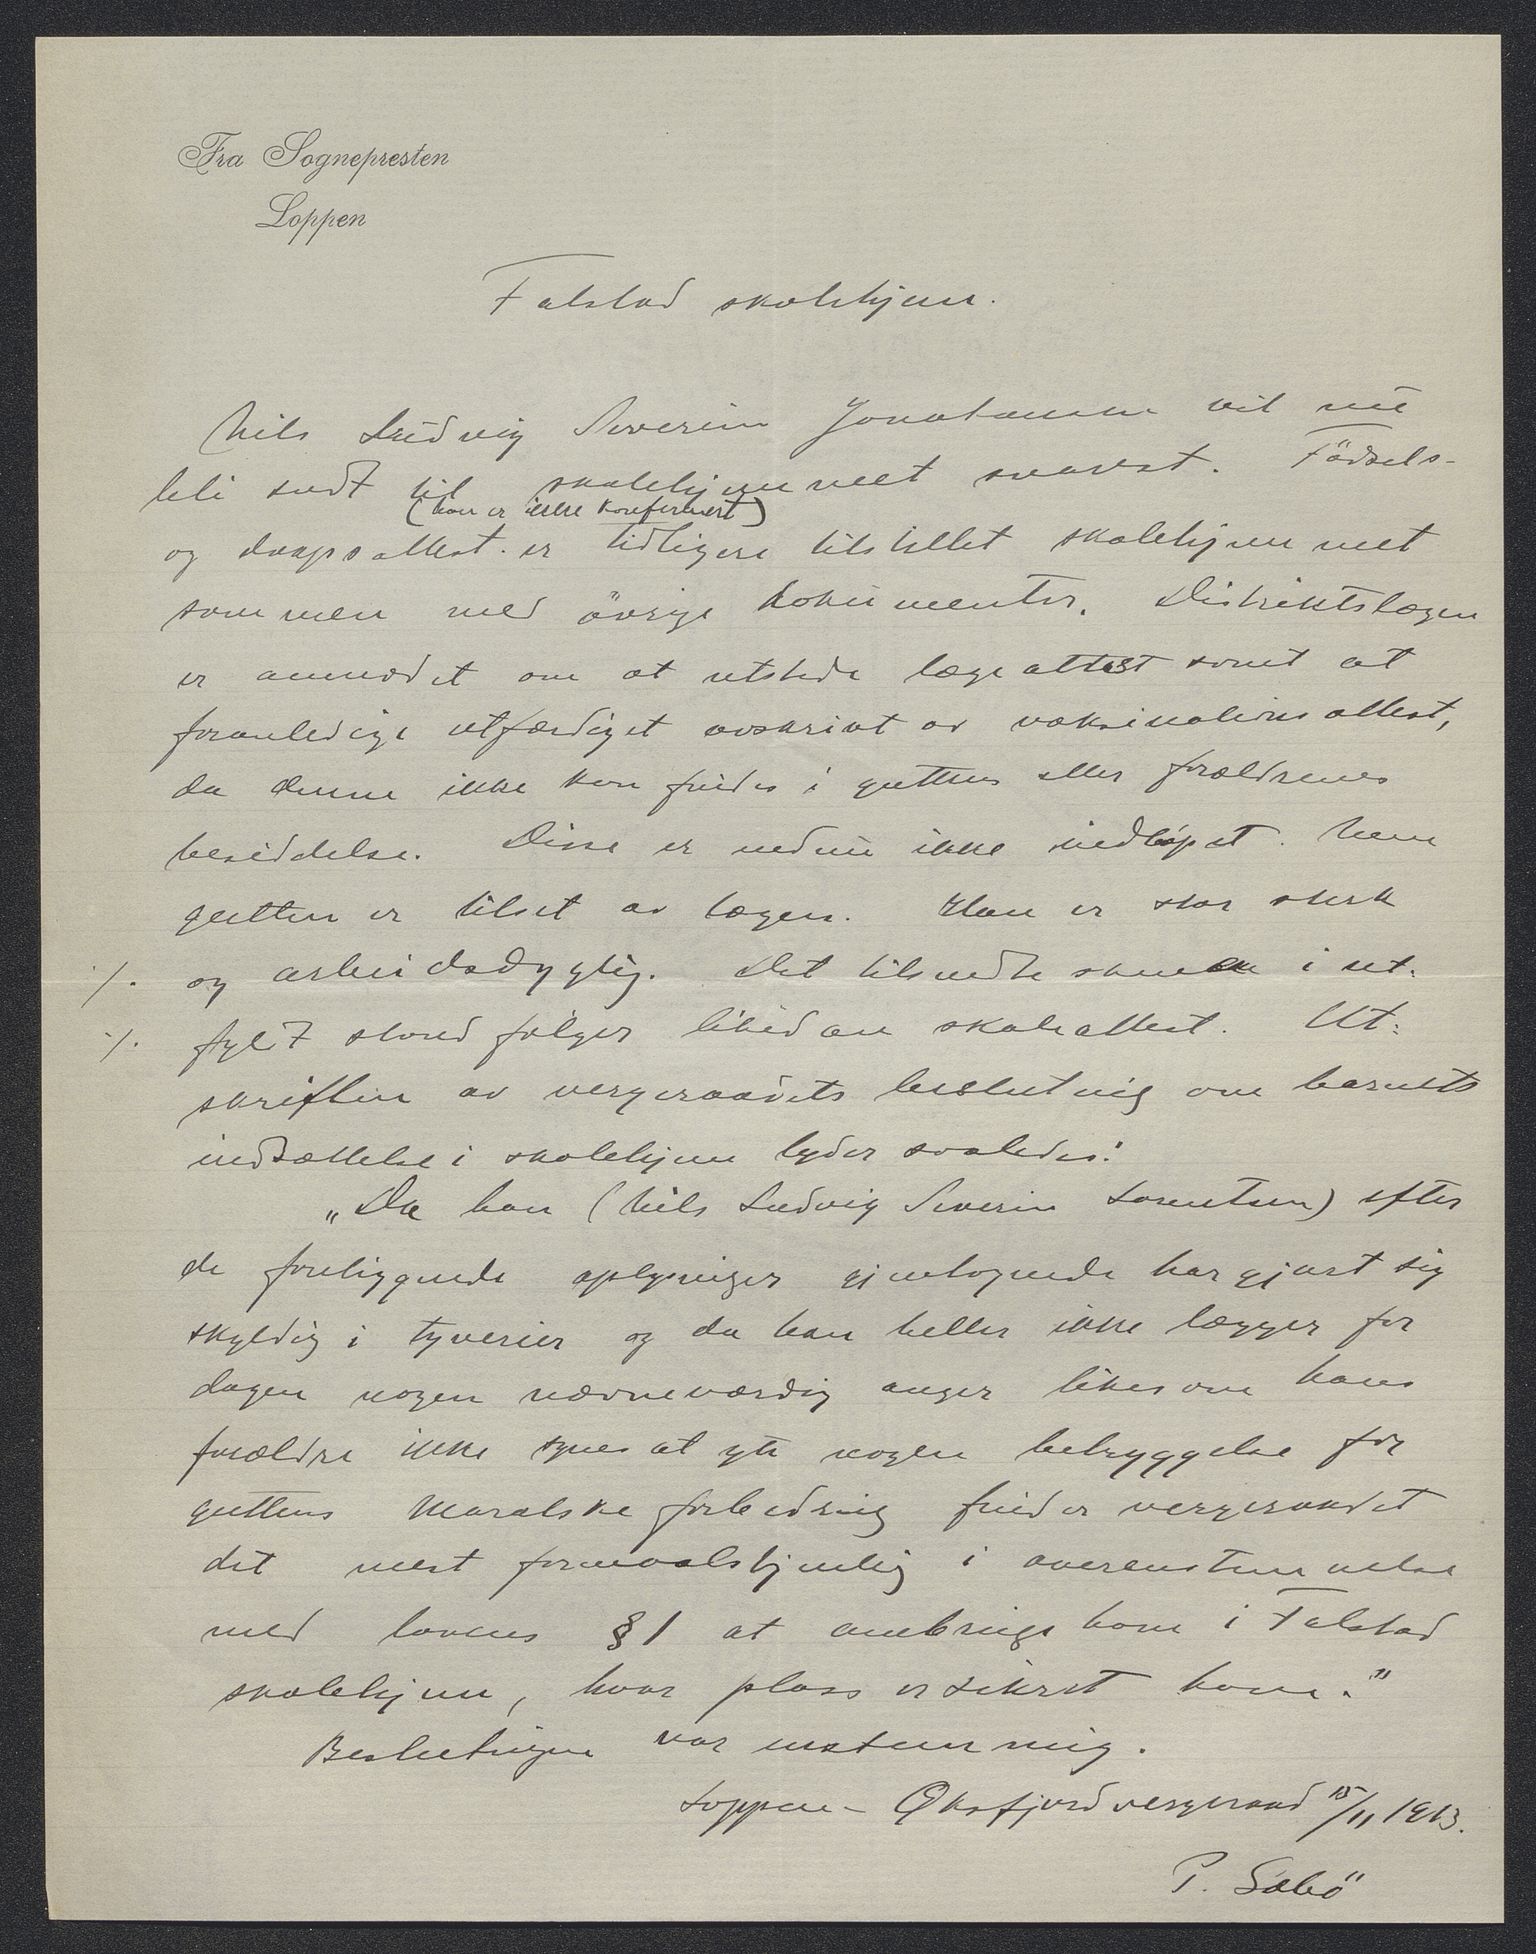 Fra Sognepresten
Loppen
Falstad skolehjem.
Nils Ludvig Severin Jonatansen vil nu
bli sendt til skolehjemmet snarest. Fødsels-
(han er ikke konfirmert)
og daapsattest er tidligere tilstillet skolehjemmet
sammen med övrige dokumenter. Distriktslægen
er anmodet om at utstede lægeattest samt at
foranledige utfærdiget avskrivt av vaksinationsattest,
da denne ikke kan findes i guttens eller forældrenes
besiddelse. Disse er endnu ikke indløpet. Men
gutten er tilset av lægen. Han er stor sterk
./. og arbeidsdygtig. Det tilsendte skema i ut-
./. fyldt stand følger likedan skoleattest. Ut-
skriften av vergeraadets beslutning om barnets
indsættelse i skolehjem lyder saaledes:
„Da han (Nils Ludvig Severin Lorentsen) efter
de foreliggende oplysninger gjentagende har gjort sig
skyldig i tyverier og da han heller ikke lægger for
dagen nogen nævneværdig anger likesom hans
forældre ikke synes at yte nogen betryggelse for
guttens moralske forbedring finder vergeraadet
det mest formaalstjenlig i overenstemmelse
med lovens § 1 at anbringe ham i Falstad
skolehjem, hvor plass er sikret ham."
Beslutningen var enstemmig.
Loppen - Øksfjord vergeraad 15/11 1913.
P. Sæbö